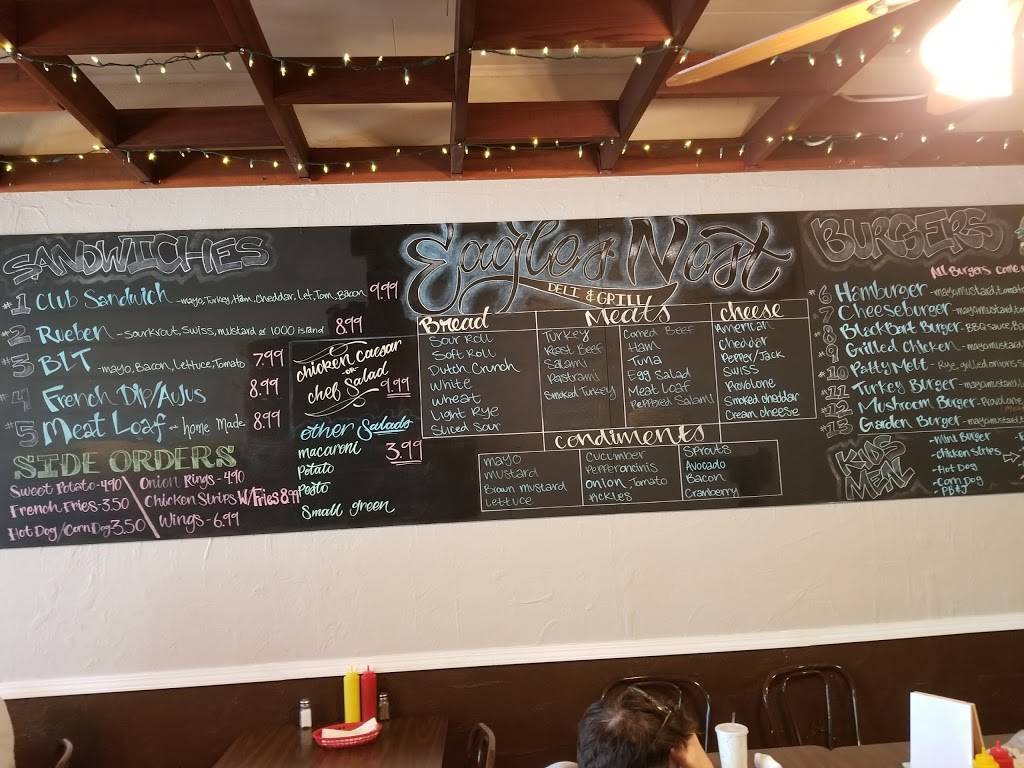 SANDWICHES
#1 Club Sandwich - mayo, Turkey, Ham, Cheddar, Let, Tom, Bacon 9.99
#2 Rueben - sourkrout, Swiss, mustard or 1000 island 8.99
#3 BLT - mayo, Bacon, Lettuce, Tomato 7.99
#4 French Dip/AuJus 8.99
#5 Meat Loaf - home made 8.99
SIDE ORDERS
Sweet Potato - 4.90
French Fries - 3.50
Hot Dog/Corn Dog 3.50
Onion Rings - 4.90
Chicken Strips W/Fries 8.99
Wings - 6.99
chicken caesar
or
chef Salad
9.99
other Salads
macaroni 3.99
Potato
Pesto
Small green
Eagles Nest
DELI & GRILL
Bread
Sour Roll
Soft Roll
Dutch Crunch
White
Wheat
Light Rye
Sliced Sour
Meats
Turkey
Roast Beef
Salami
Pastrami
Smoked Turkey
Corned Beef
Ham
Tuna
Egg Salad
Meat Loaf
Peppered Salami
cheese
American
Chedder
Pepper/Jack
Swiss
Provolone
Smoked cheddar
Cream cheese
condiments
mayo
mustard
Brown mustard
Lettuce
Cucumber
Pepperoncinis
Onion, Tomato
Pickles
Sprouts
Avocado
Bacon
Cranberry
BURGERS
All Burgers come
#6 Hamburger - mayo, mustard, tomato
#7 Cheeseburger - mayo, mustard, tom
#8 Black Bart Burger - BBQ sauce, Ba
#9 Grilled Chicken - mayo, mustard
#10 Patty Melt - Rye, grilled onions, S
#11 Turkey Burger - mayo, mustard, L
#12 Mushroom Burger - Provolone
#13 Garden Burger - mayo, mustard
KIDS
MENU
- Mini Burger
- Chicken Strips
- Hot Dog
- Corn Dog
- PB & J